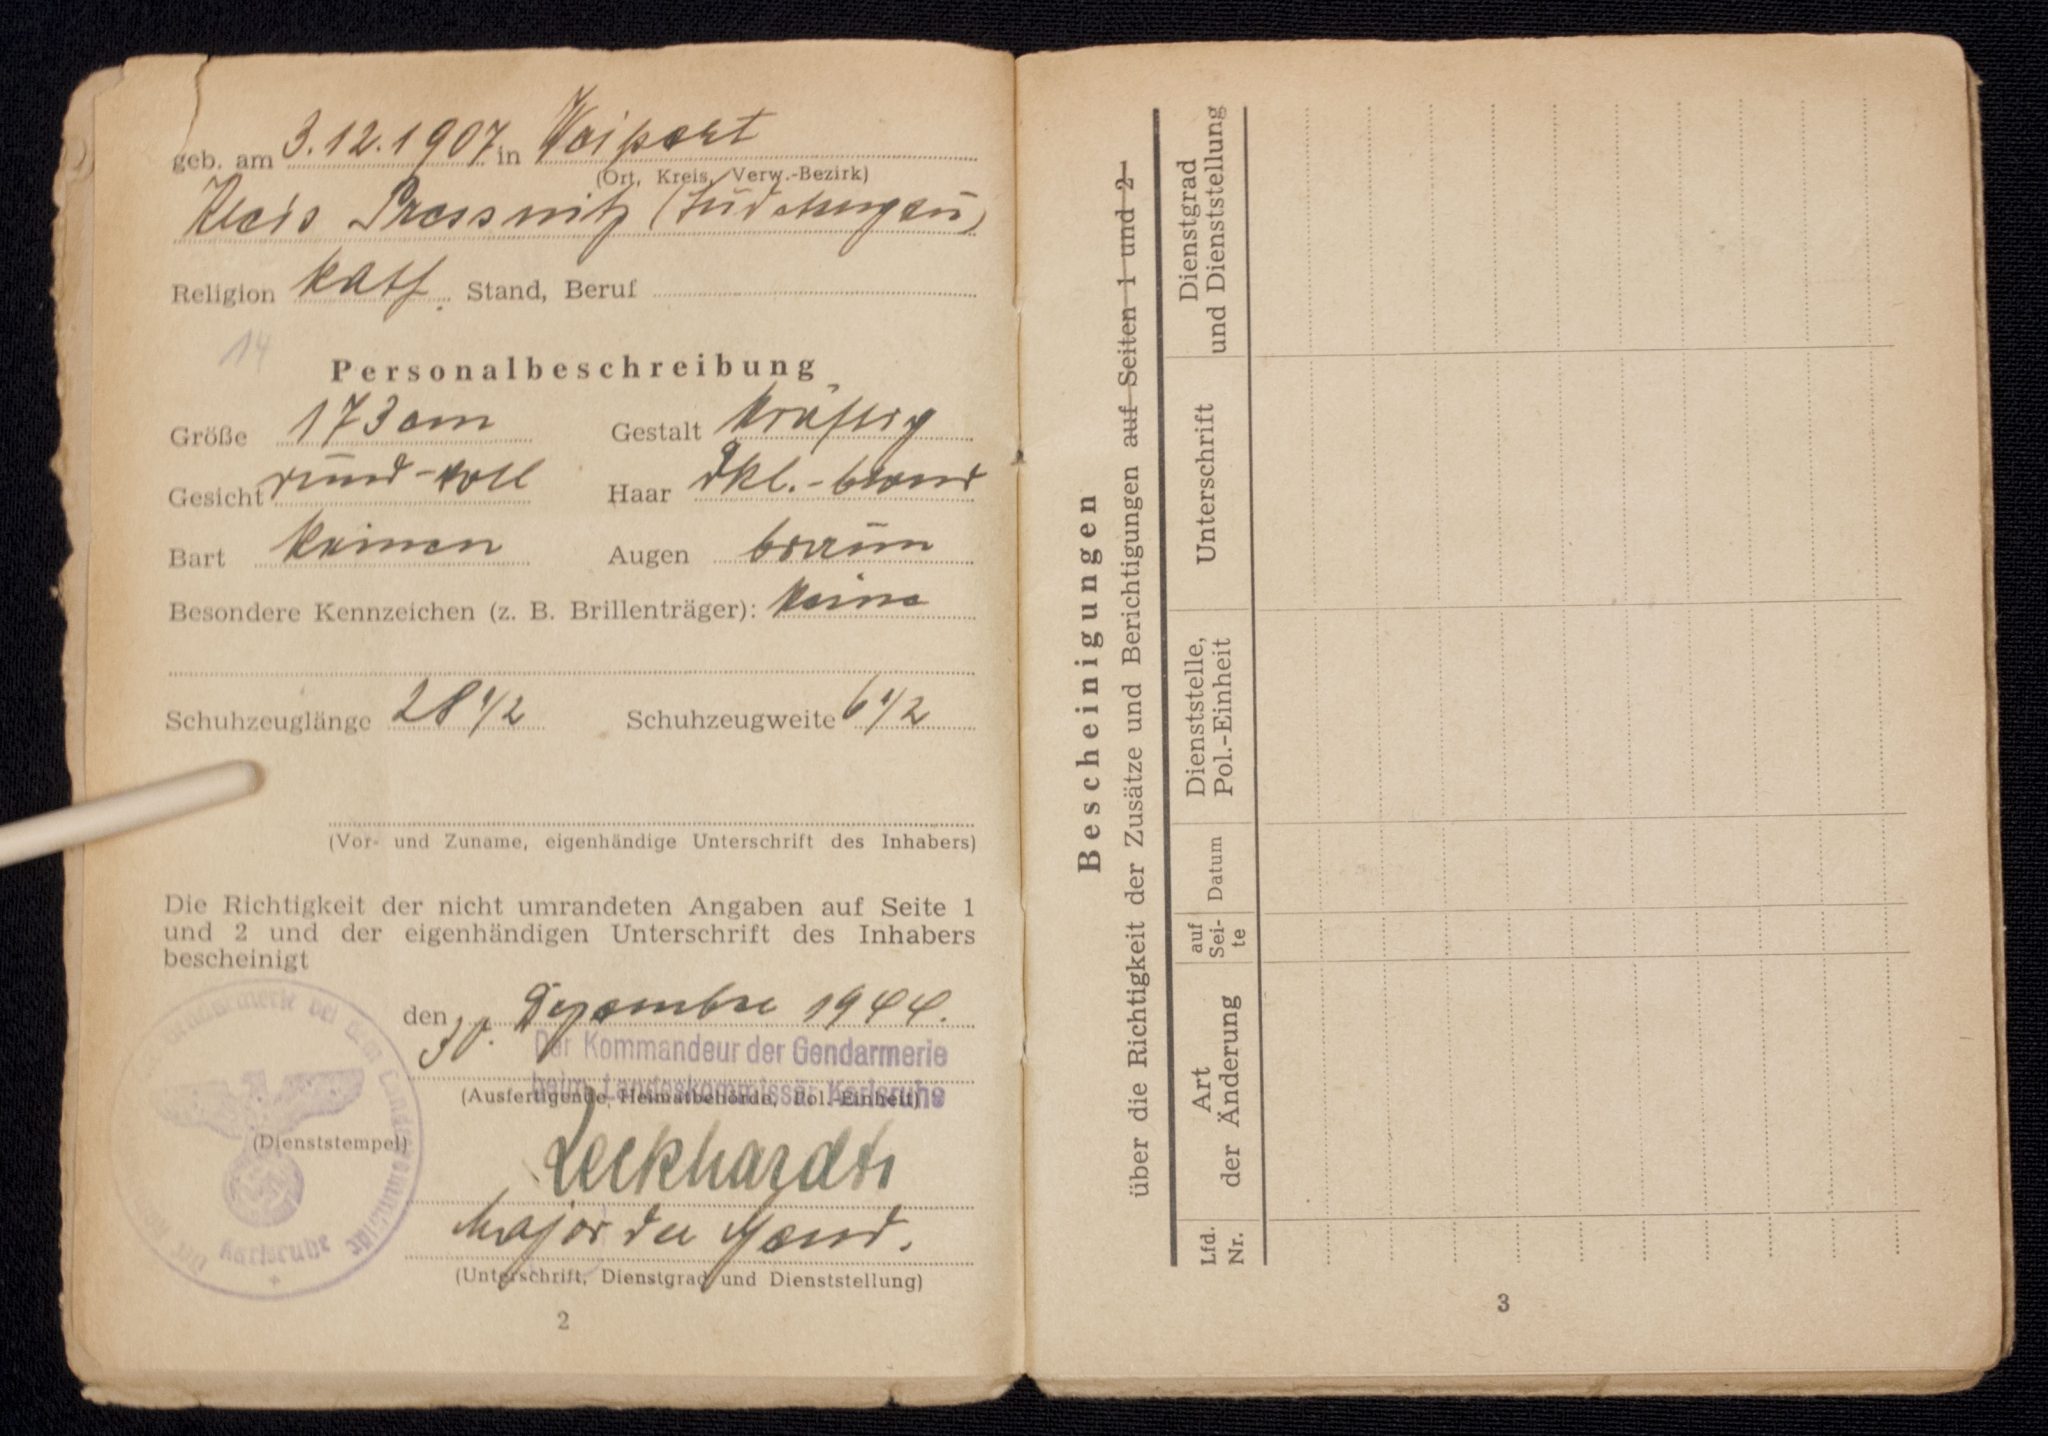 geb. am 3.12.1907 in Weipert
(Ort, Kreis, Verw.-Bezirk)
Kreis Pressnitz (Sudetengau)
Religion kath. Stand, Beruf
14
Personalbeschreibung
Größe 173 cm Gestalt kräftig
Gesicht rund-voll Haar dkl.-blond
Bart keinen Augen braun
Besondere Kennzeichen (z. B. Brillenträger): keine
Schuhzeuglänge 28 1/2 Schuhzeugweite 6 1/2
(Vor- und Zuname, eigenhändige Unterschrift des Inhabers)
Die Richtigkeit der nicht umrandeten Angaben auf Seite 1
und 2 und der eigenhändigen Unterschrift des Inhabers
bescheinigt
den 30. Dezember 1944.
Der Kommandeur der Gendarmerie
beim Landeskommissär Karlsruhe
(Ausfertigende Heimatbehörde, Pol.-Einheit)
(Dienststempel)
Karlsruhe
Major der Gend.
(Unterschrift, Dienstgrad und Dienststellung)
2
Bescheinigungen
über die Richtigkeit der Zusätze und Berichtigungen auf Seiten 1 und 2
Lfd. Nr.
Art der Änderung
auf Sei- te
Datum
Dienststelle, Pol.-Einheit
Unterschrift
Dienstgrad und Dienststellung
3